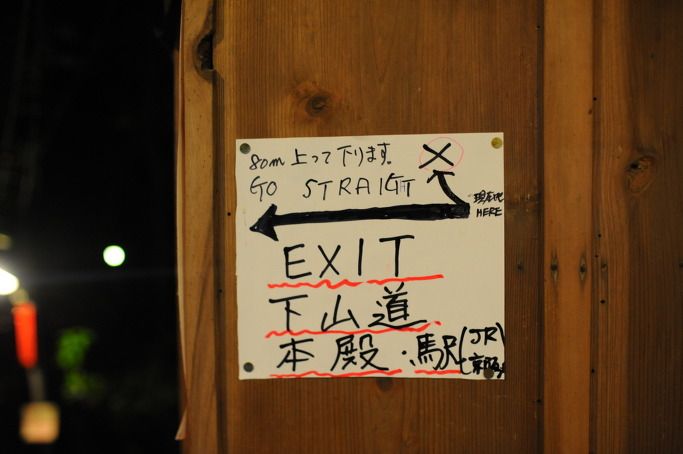 80m 上って下ります。 X
GO STRAIGHT
現在地
HERE
EXIT
下山道
本殿・駅(JR
京阪)